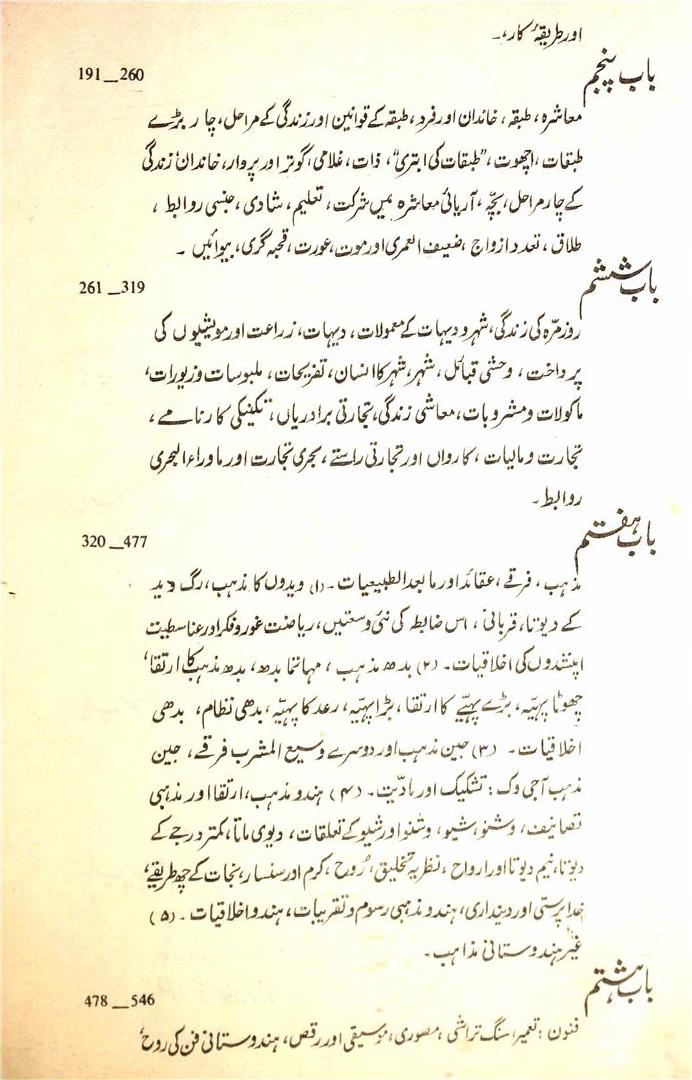 اور طریقۂ کار،۔
باب پنجم
191__260
معاشرہ، طبقہ، خاندان اور فرد، طبقہ کے قوانین اور زندگی کے مراحل، چار بڑے
طبقات، اچھوت، "طبقات کی ابتری"، ذات، غلامی، گوتر اور پروار، خاندان، زندگی
کے چار مراحل، بچّہ، آریائی معاشرہ میں شرکت، تعلیم، شادی، جنسی روابط،
طلاق، تعدد ازواج، ضعیف العمری اور موت، عورت، قحبہ گری، بیوائیں ۔
باب ششم
261__319
روزمرّہ کی زندگی، شہر و دیہات کے معمولات، دیہات، زراعت اور مویشیوں کی
پرداخت، وحشی قبائل، شہر، شہر کا انسان، تفریحات، ملبوسات و زیورات،
ماکولات و مشروبات، معاشی زندگی، تجارتی برادریاں، تکنیکی کارنامے،
تجارت و مالیات، کارواں اور تجارتی راستے، بحری تجارت اور ماوراء البحری
روابط۔
باب ہفتم
320__477
مذہب، فرقے، عقائد اور مابعد الطبیعیات۔ (۱) ویدوں کا مذہب، رگ وید
کے دیوتا، قربانی، اس ضابطہ کی نئی وسعتیں، ریاضت غور و فکر اور عناسطیت
اپنشدوں کی اخلاقیات۔ (۲) بدھ مذہب، مہاتما بدھ، بدھ مذہب کا ارتقا،
چھوٹا پہیّہ، بڑے پہیّے کا ارتقا، بڑا پہیّہ، رعد کا پہیّہ، بدھی نظام، بدھی
اخلاقیات۔ (۳) جین مذہب اور دوسرے وسیع المشرب فرقے، جین
مذہب آجی وک: تشکیک اور مادّیت۔ (۴) ہندو مذہب، ارتقا اور مذہبی
تصانیف، وشنو، شیو، وشنو اور شیو کے تعلقات، دیوی ماتا، کمتر درجے کے
دیوتا، نیم دیوتا اور ارواح، نظریہ تخلیق، رُوح، کرم اور سنسار، نجات کے چھ طریقے،
خدا پرستی اور دینداری، ہندو مذہبی رسوم و تقریبات، ہندو اخلاقیات۔ (۵)
غیر ہندوستانی مذاہب۔
باب ہشتم
478__546
فنون: تعمیر، سنگ تراشی، مصوری، موسیقی اور رقص، ہندوستانی فن کی روح،